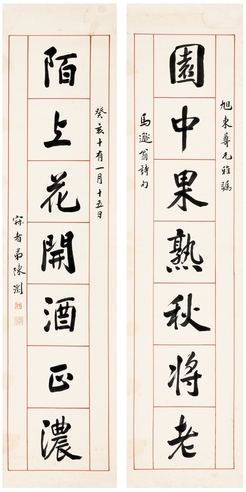 旭東尊兄雅屬
園中果熟秋將老
馬遜翁詩句
癸亥十有一月十五日
陌上花開酒正濃
宷者弟陳瀏